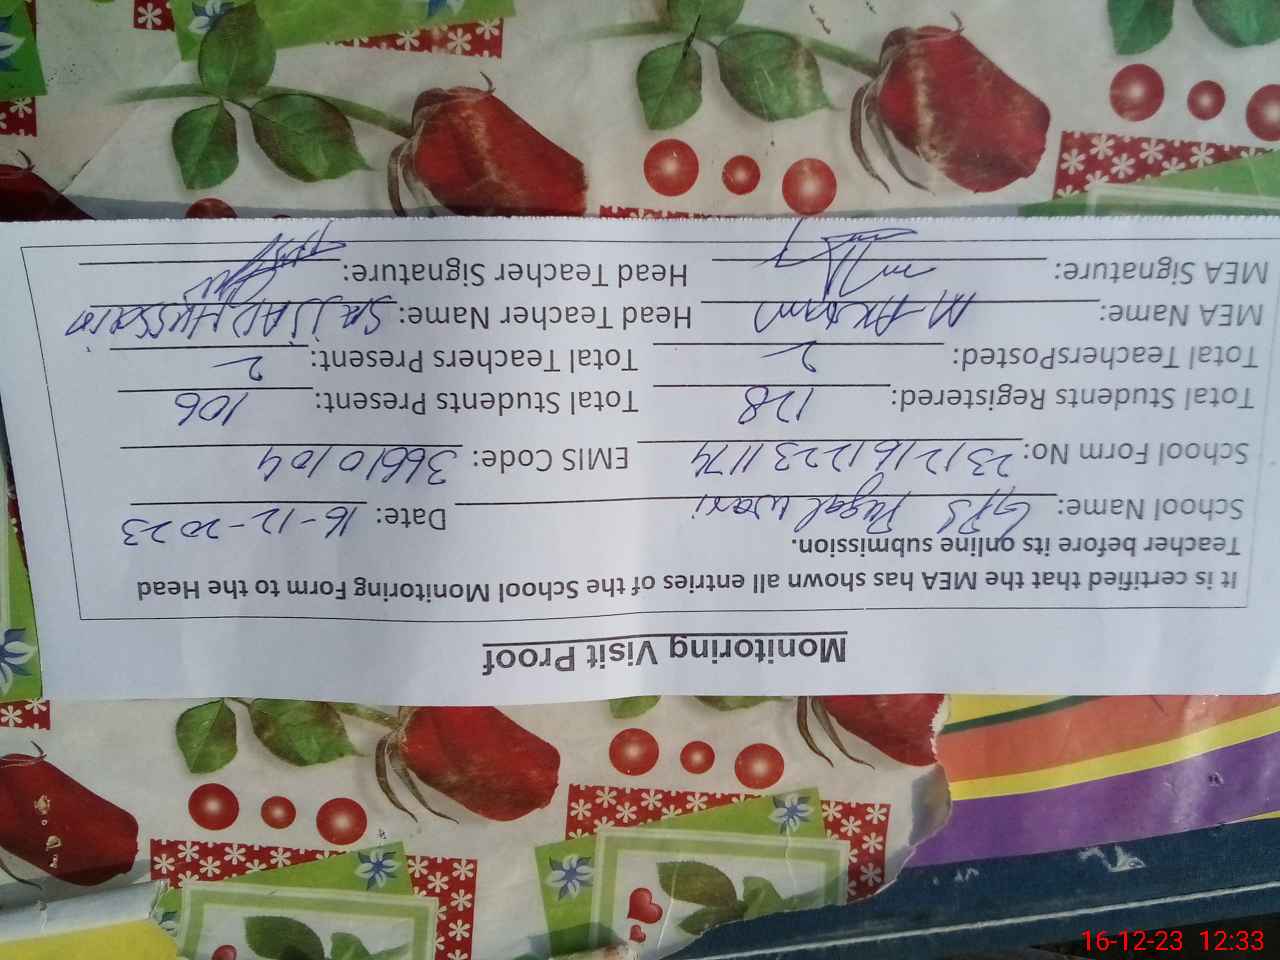 Monitoring Visit Proof
It is certified that the MEA has shown all entries of the School Monitoring Form to the Head
Teacher before its online submission.
School Name: GPS Pugal wari Date: 16-12-2023
School Form No: 231216122311174 EMIS Code: 36610104
Total Students Registered: 128 Total Students Present: 106
Total TeachersPosted: 2 Total Teachers Present: 2
MEA Name: M. Akram Head Teacher Name: SAJJAD HUSSAIN
MEA Signature: Head Teacher Signature:
16-12-23 12:33